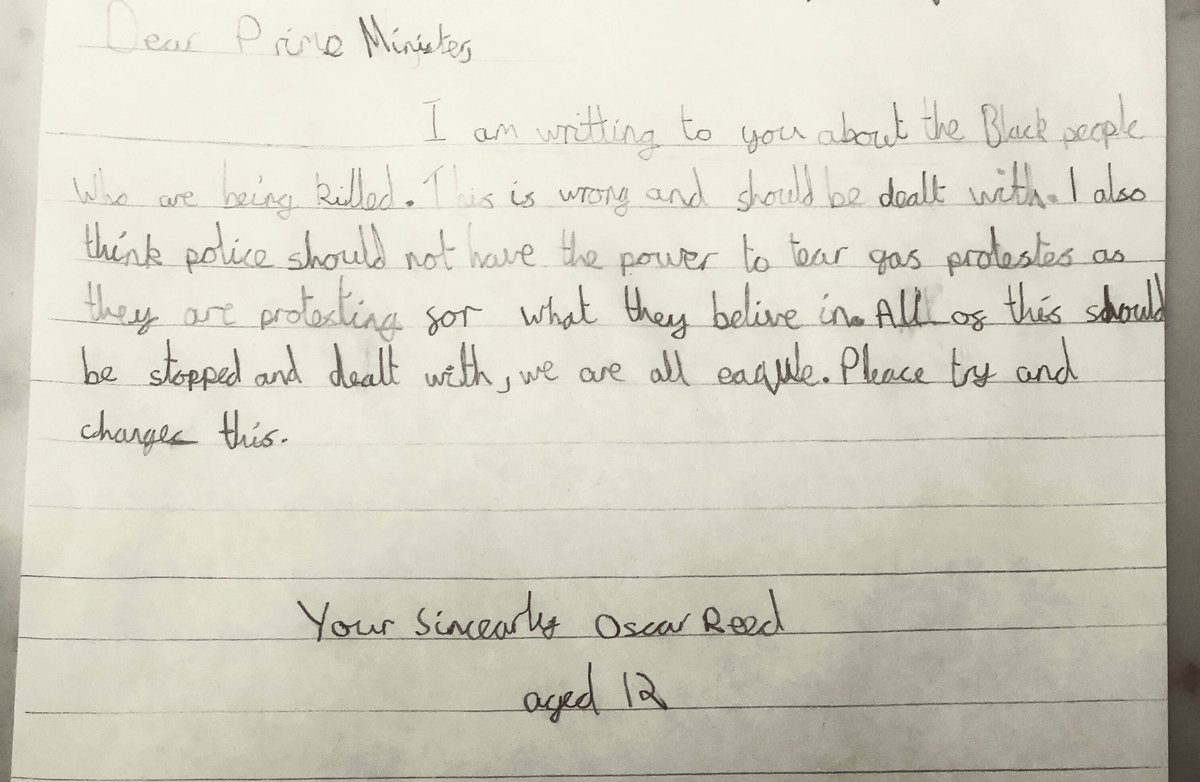 Dear Prime Minister,
I am writting to you about the Black people
who are being killed. This is wrong and should be dealt with. I also
think police should not have the power to tear gas protestes as
they are protesting for what they belive in. All of this should
be stopped and dealt with, we are all eaqule. Pleace try and
changes this.
Your Sincearly Oscar Reed
aged 12